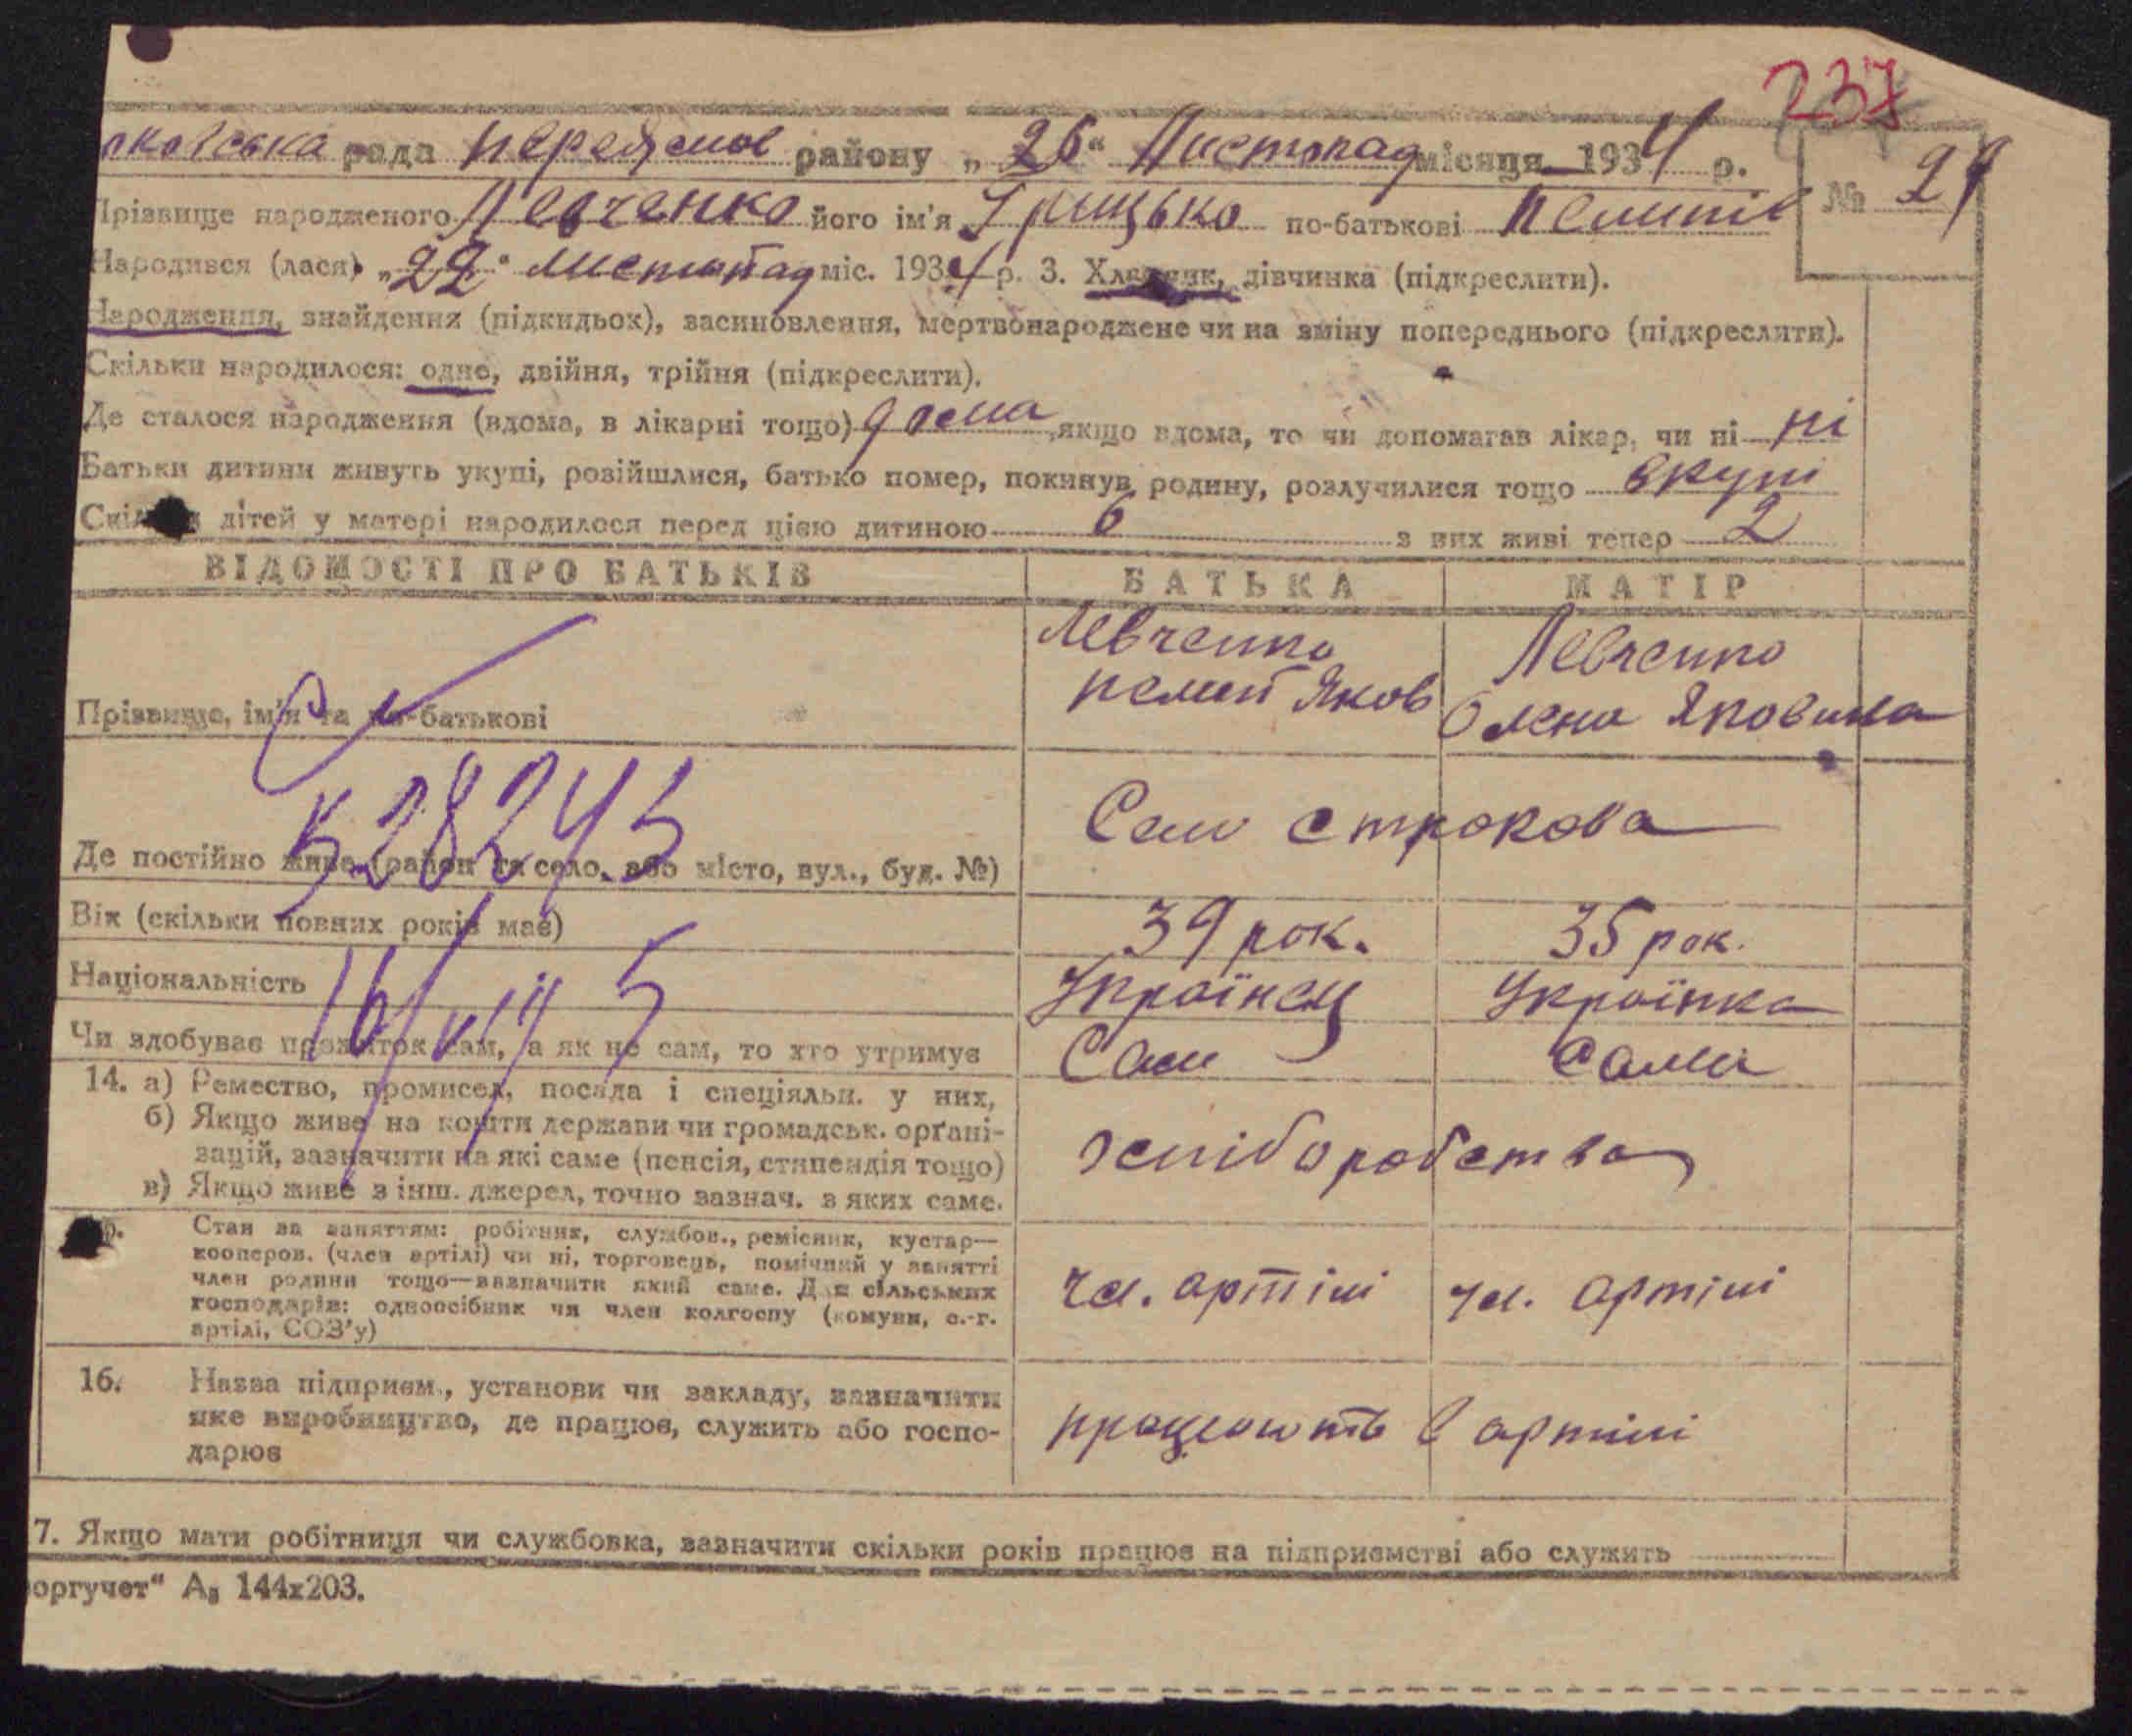 237
рада Переяслов району „26“ Листопад місяця 1934 р.
№ 29
Прізвище народженого Левченко його ім'я Грицько по-батькові Пемпів
Народився (лася) „22“ листопад міс. 1934 р. 3. Хлопчик, дівчинка (підкреслити).
Народження, знайдення (підкидьок), засиновлення, мертвонароджене чи на зміну попереднього (підкреслити).
Скільки народилося: одне, двійня, трійня (підкреслити).
Де сталося народження (вдома, в лікарні тощо) дома якщо вдома, то чи допомагав лікар, чи ні ні
Батьки дитини живуть укупі, розійшлися, батько помер, покинув родину, розлучилися тощо вкупі
Скільки дітей у матері народилося перед цією дитиною 6 з них живі тепер 2
ВІДОМОСТІ ПРО БАТЬКІВ БАТЬКА МАТІР
Прізвище, ім'я та по-батькові
Левченко
Яков
Левченко
Олена Яковина
528245
Де постійно живе (район та село, або місто, вул., буд. №) Село строкова
Вік (скільки повних років має) 39 рок. 35 рок.
Національність Українец Українка
Чи здобуває прожиток сам, а як не сам, то хто утримує Сам Сама
14. а) Ремество, промисел, посада і спеціяльн. у них,
б) Якщо живе на кошти держави чи громадськ. орґані-
зацій, зазначити на які саме (пенсія, стипендія тощо)
в) Якщо живе з інш. джерел, точно зазнач. з яких саме.
Стан за заняттям: робітник, службов., ремісник, кустар—
кооперов. (член артілі) чи ні, торговець, помічний у занятті
член родини тощо—зазначити який саме. Для сільських
господарів: одноосібник чи член колгоспу (комуни, с.-г.
артілі, СОЗ'у)
чл. артілі чл. артілі
16. Назва підприєм., установи чи закладу, зазначити
яке виробництво, де працює, служить або госпо-
дарює
працюють в артілі
7. Якщо мати робітниця чи службовка, зазначити скільки років працює на підприємстві або служить
оргучет“ А5 144х203.